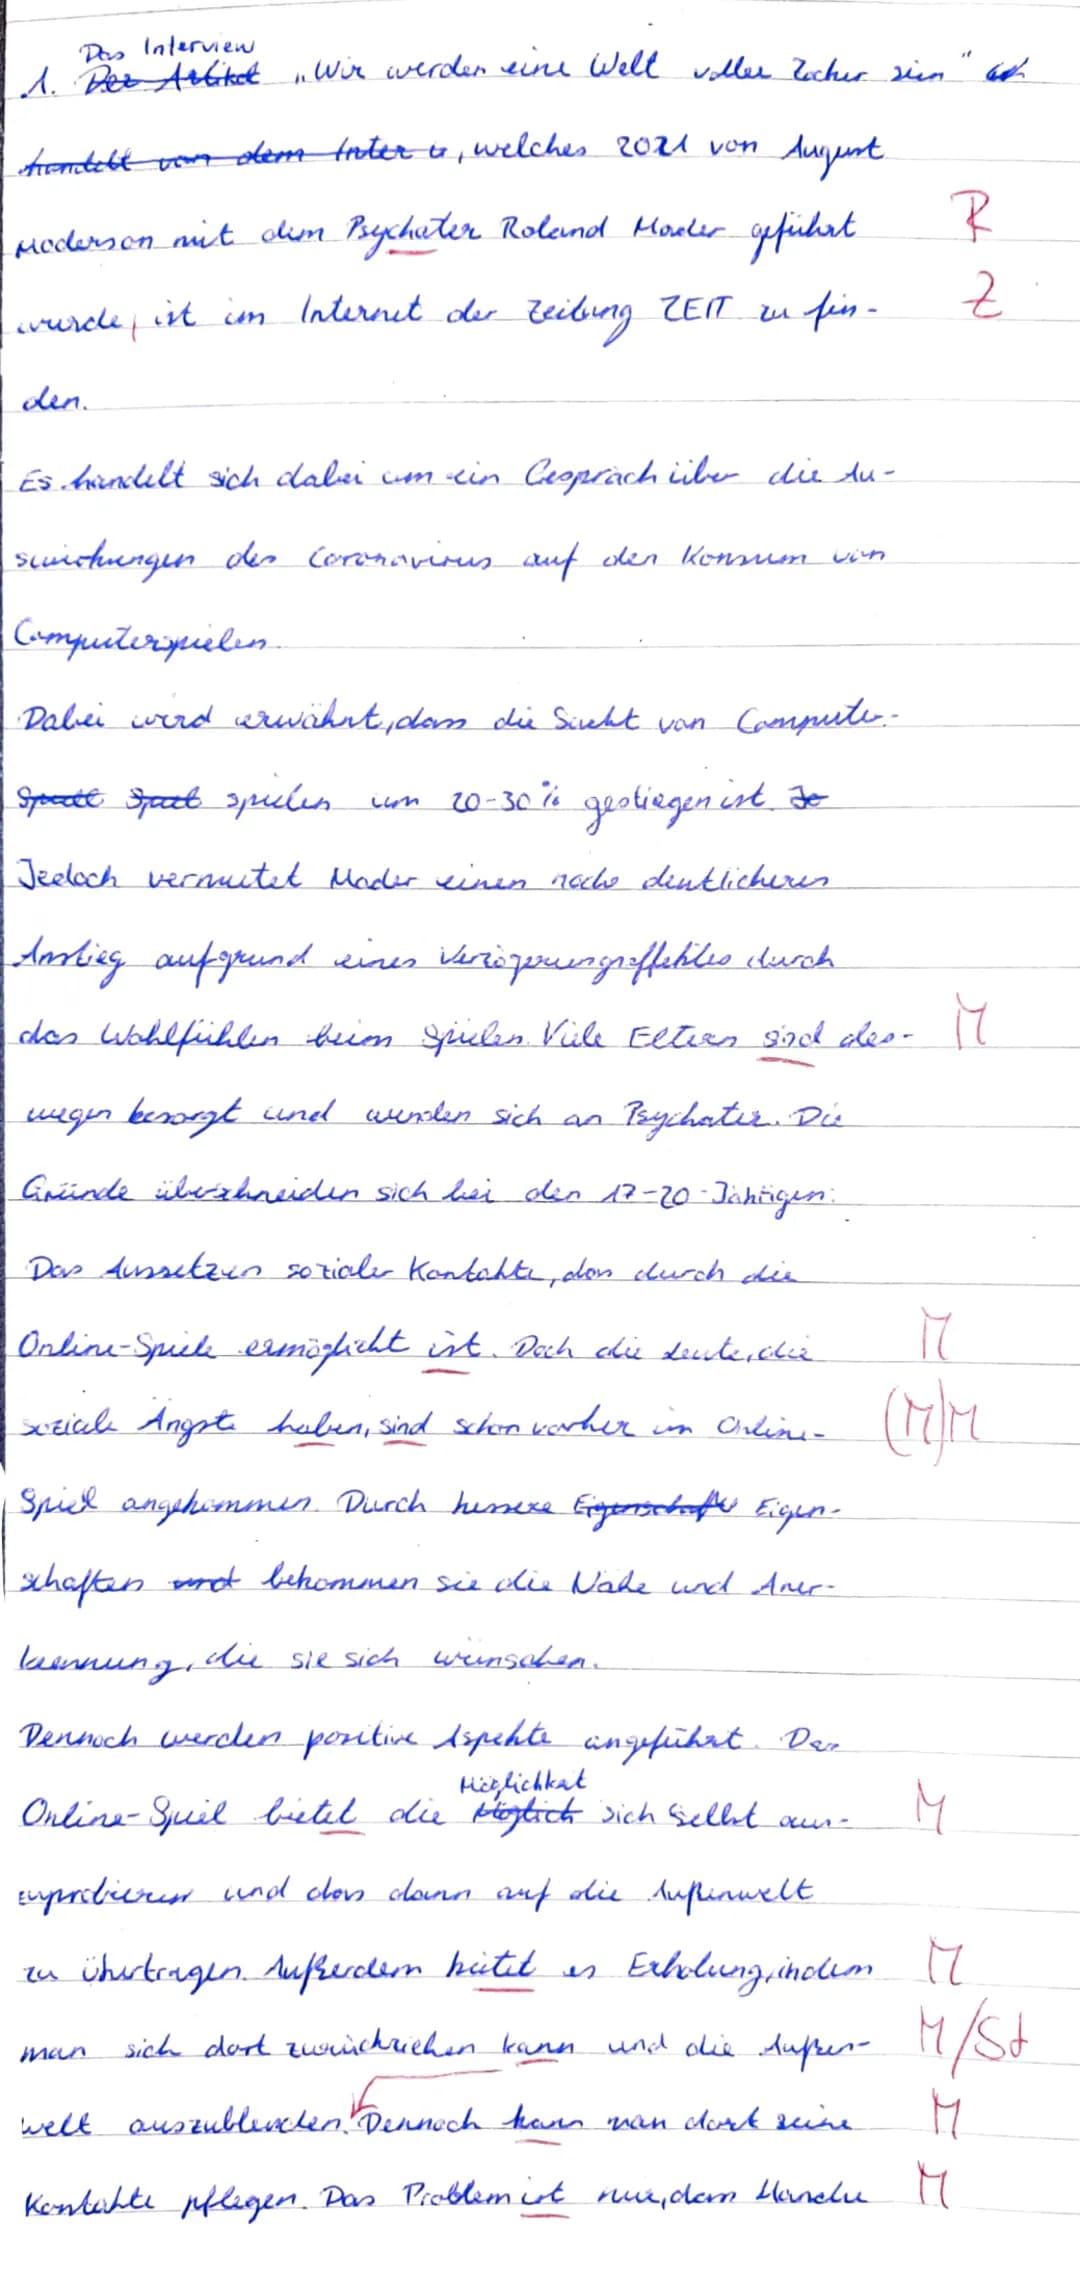 Das Interview
1. Der Artikel „Wir werden eine Welt voller Zocher sein"
handelt von dem Inter , welches 2021 von August
Moderson mit dem Psychater Roland Mader geführt R
wurde, ist im Internet der Zeitung ZEIT zu fin- Z
den.
Es handelt sich dabei um ein Gespräch über die Au-
swirkungen des Coronavirus auf den Konsum von
Computerspielen.
Dabei wird erwähnt, dass die Sucht von Computer-
spielen um 20-30% gestiegen ist. Je
Jedoch vermutet Mader einen noch deutlicheren
Anstieg aufgrund eines Verzögerungseffektes durch
das Wohlfühlen beim Spielen. Viele Eltern sind des- M
wegen besorgt und wenden sich an Psychater. Die
Gründe überschneiden sich bei den 17-20-Jährigen:
Das Aussetzen sozialer Kontakte, das durch die
Online-Spiele ermöglicht ist. Doch die Leute, die M
soziale Ängste haben, sind schon vorher im Online- (M) M
Spiel angekommen. Durch bessere Eigenschafte Eigen-
schaften und bekommen sie die Nähe und Aner-
kennung, die sie sich wünschen.
Dennoch werden positive Aspekte angeführt. Das
Möglichkeit
Online-Spiel bietet die Möglich sich selbst aus- M
zuprobieren und das dann auf die Außenwelt
zu übertragen. Außerdem bietet es Erholung, indem M
man sich dort zurückziehen kann und die Außen- M/St
welt auszublenden. Dennoch kann man dort seine M
Kontakte pflegen. Das Problem ist nur, dass Manche M